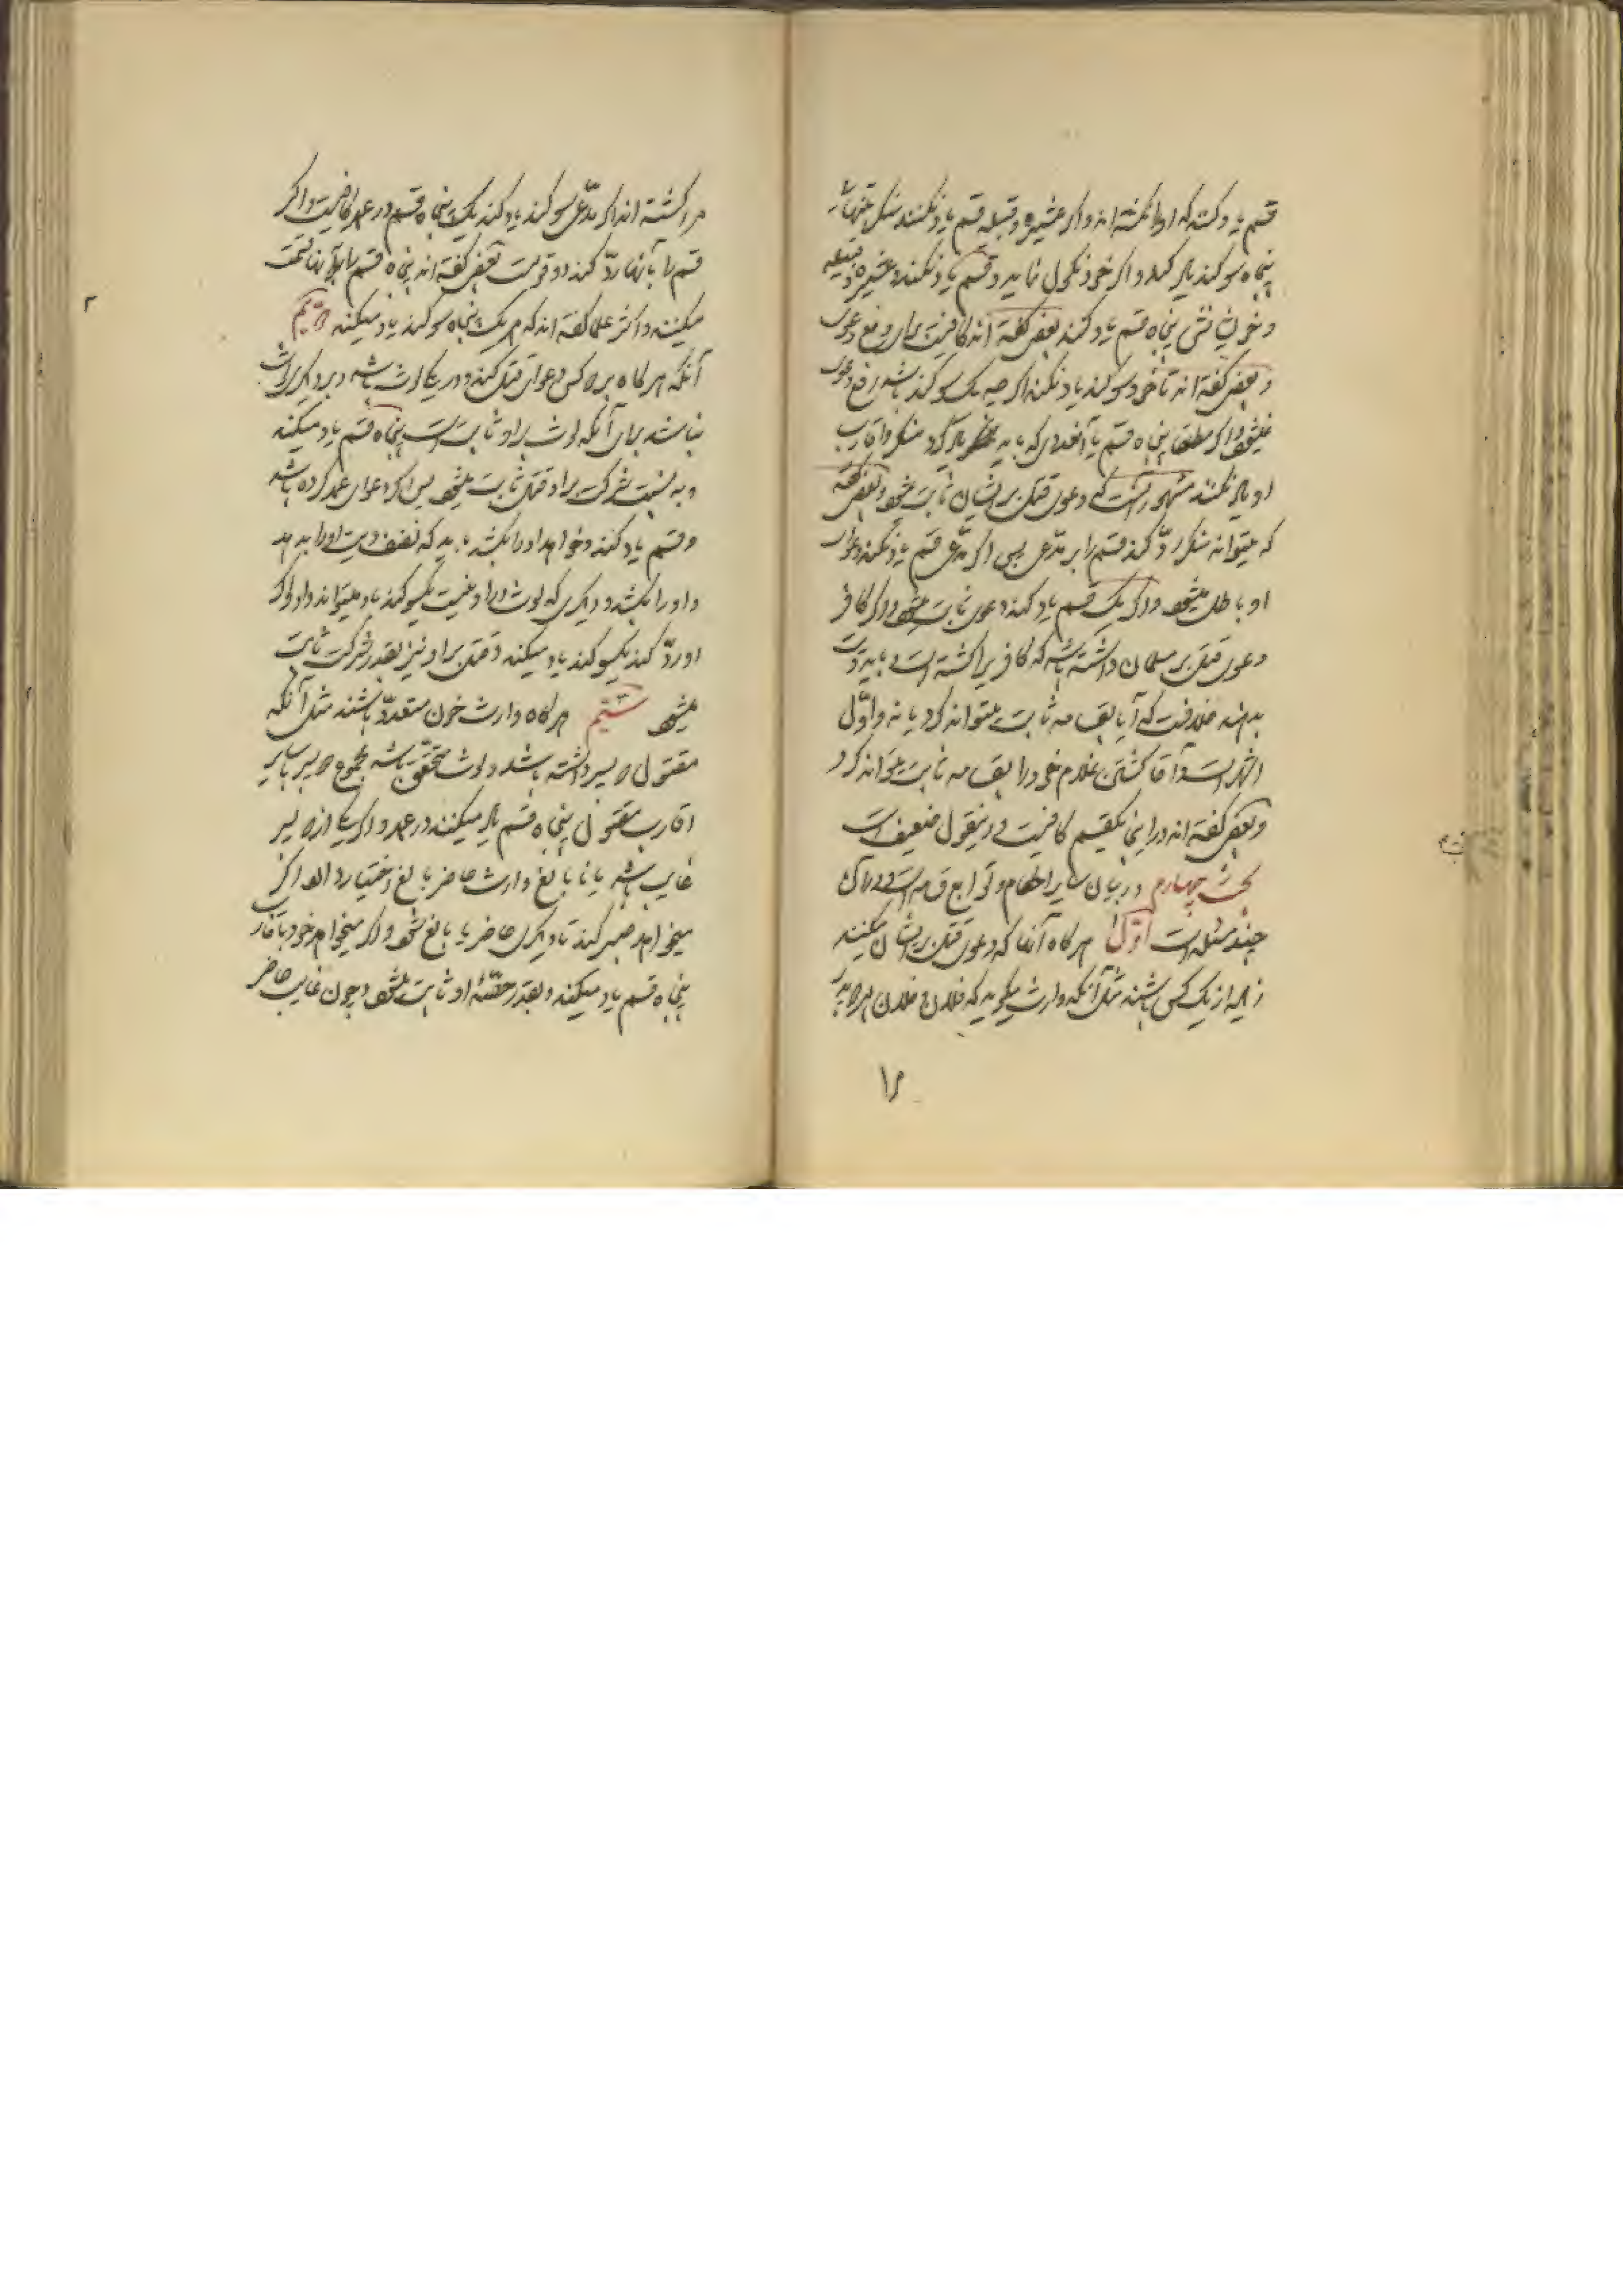 قسم یاد کنند که او را نکشته اند و اگر عشیره و قبیله قسم یاد نکنند منکر تنها
پنجاه سوکند یاد کند و اگر خود نکول نماید و قسم یاد نکند و عشیره و قبیله
و خویش پنجاه قسم یاد کنند بعضی گفته اند کافیست برای رفع دعوی
و بعضی گفته اند تا خود سوکند یاد نکند اگر چه یک سوکند باشد رفع دعوی
نمیشود و اگر مطلقا پنجاه قسم یا آنقدری که باید یاد کرد منکر و اقارب
او یاد نکنند مشهور آنست که دعوی قتل بر ایشان ثابت میشود و بعضی گفته
که میتواند منکر ردّ کند قسم را بر مدّعی پس اگر مدّعی قسم یاد نکند دعوای
او باطل میشود و اگر یک قسم یاد کند دعوی ثابت میشود و اگر کافر
دعوی قتل بر مسلمان داشته باشد که کافر را کشته است و باید دیت
بدهد خلافست که آیا بقسامه ثابت میتواند کرد یا نه و اوّل
اشهر است و آقا کشتن غلام خود را بقسامه ثابت میتواند کرد
و بعضی گفته اند در اینجا یکقسم کافیست و اینقول ضعیف است
بحث چهارم در بیان سایر احکام و توابع قسامه است و در آن
چند مسئله است اوّل هرگاه آنها که دعوی قتل بر ایشان میکنند
زیاده از یک کس باشند مثل آنکه وارث میگوید که فلان و فلان هر دو پدر
مرا کشته اند اگر مدّعی سوکند یاد کند یک پنجاه قسم در عمد کافیست و اگر
قسم را بآنها ردّ کند دو قولست بعضی گفته اند پنجاه قسم را بر آنها قسمت
میکنند و اکثر علما گفته اند که هر یک پنجاه سوکند یاد میکنند دویّم
آنکه هرگاه بر دو کس دعوای قتل کند و در یکی لوث باشد و بر دیگری لوث
نباشد برای آنکه لوث بر او ثابت است پنجاه قسم یاد میکند
و به نسبت شرکت بر او قتل ثابت میشود پس اگر دعوای عمد کرده باشد
و قسم یاد کند و خواهد او را بکشد باید که نصف دیت او را بدهد
و او را بکشد و دیگری که لوث در او نیست یکسوکند یاد میتواند داد و اگر
او ردّ کند یکسوکند یاد میکند و قتل بر او نیز بقدر شرکت ثابت
میشود سیّم هرگاه وارث خون متعدّد باشند مثل آنکه
مقتول دو پسر داشته باشد و لوث متحقّق باشد مجموع دو پسر با سایر
اقارب مقتول پنجاه قسم یاد میکنند در عمد و اگر یکی از دو پسر
غایب باشد یا نابالغ وارث حاضر بالغ اختیار دارد اگر
میخواهد صبر کند تا دیگری حاضر یا بالغ شود و اگر میخواهد خود با اقارب
پنجاه قسم یاد میکند و بقدر حصّهٔ او ثابت میشود و چون غایب حاضر